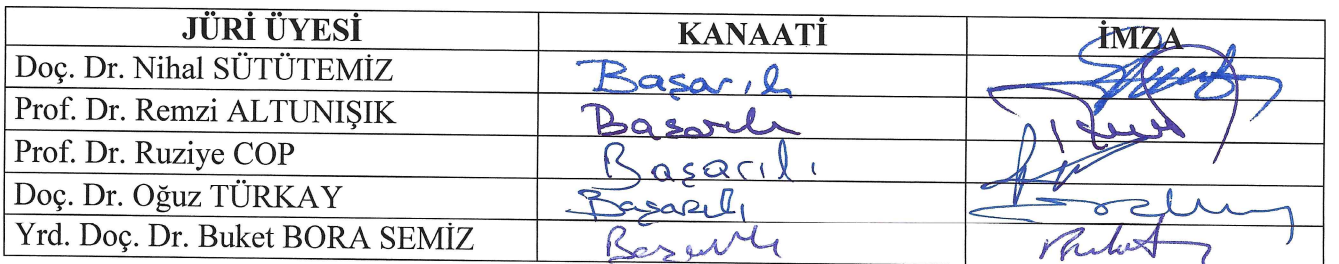 JÜRİ ÜYESİ KANAATİ İMZA
Doç. Dr. Nihal SÜTÜTEMİZ Başarılı
Prof. Dr. Remzi ALTUNIŞIK Başarılı
Prof. Dr. Ruziye COP Başarılı
Doç. Dr. Oğuz TÜRKAY Başarılı
Yrd. Doç. Dr. Buket BORA SEMİZ Başarılı